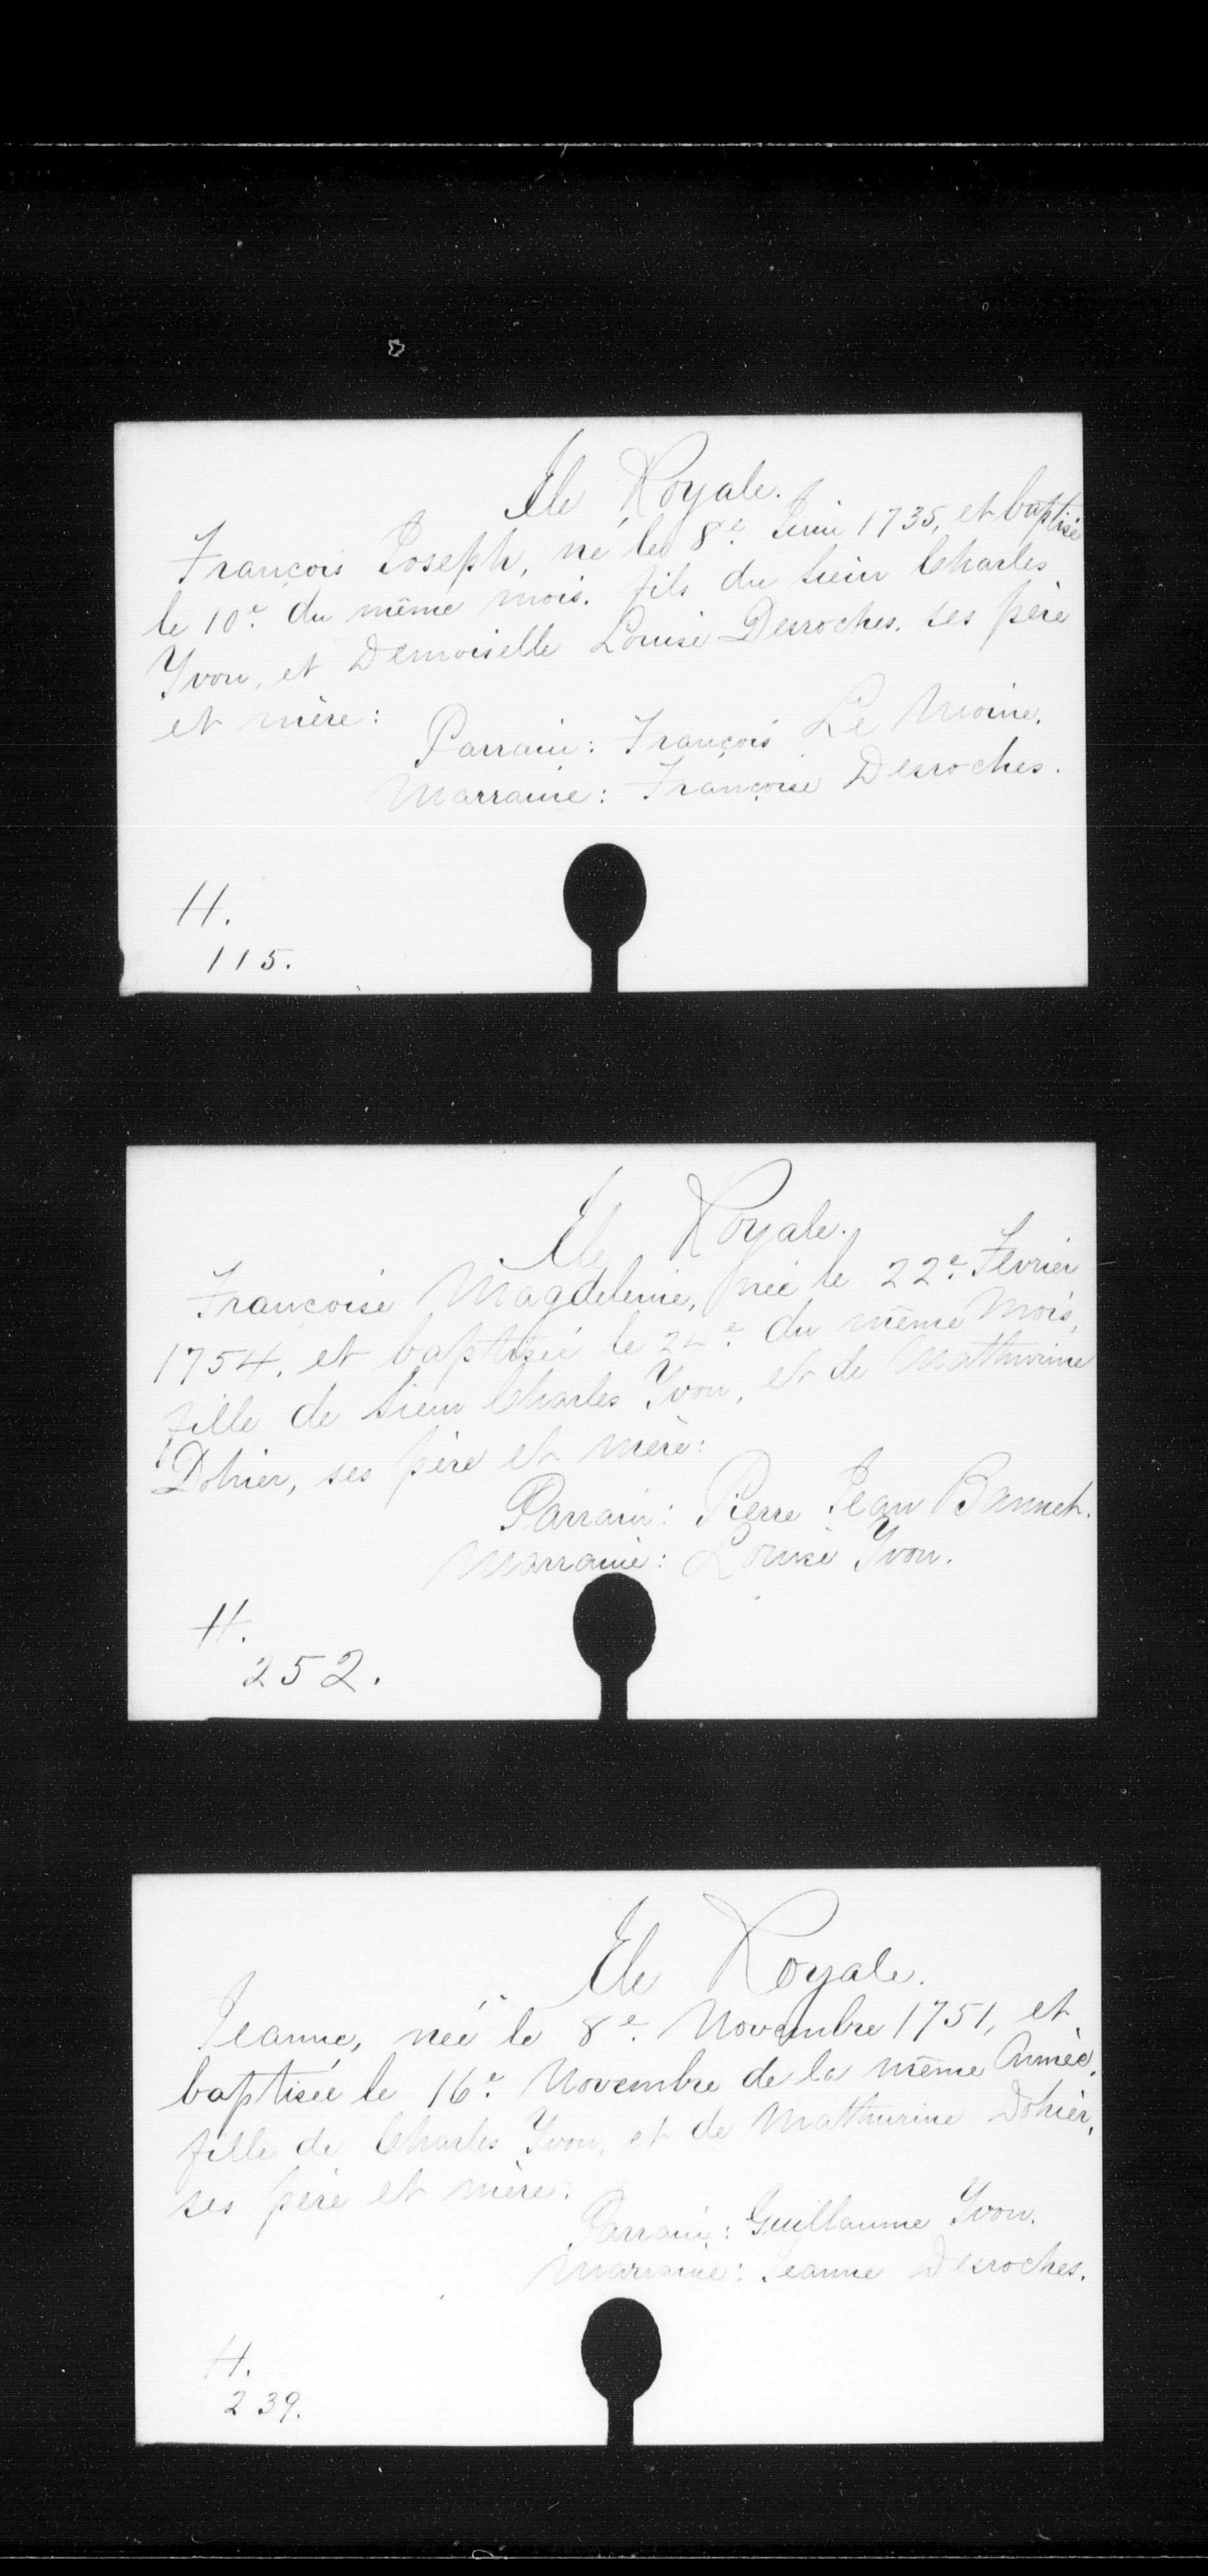 Ile Royale.
François Joseph, né le 8e. Juin 1735, et baptisé
le 10e. du même mois. fils du Sieur Charles
Yvon, et Demoiselle Louise Desroches. ses père
et mère:
Parrain: François Le Moine.
Marraine: Françoise Desroches.
H.
115.
Ile Royale.
Françoise Magdeleine, née le 22e. Fevrier
1754. et baptisée le 24e. du même Mois,
fille de Sieur Charles Yvon, et de Mathurine
Dohier, ses père et mère:
Parrain: Pierre Jean
Marraine: Louise Yvon.
H.
252.
Ile Royale.
Jeanne, née le 8e. Novembre 1751, et
baptisée le 16e. Novembre de la même Année.
fille de Charles Yvon, et de Mathurine Dohier,
ses père et mère:
Parrain: Guillaume Yvon.
Marraine: Jeanne Desroches.
H.
239.